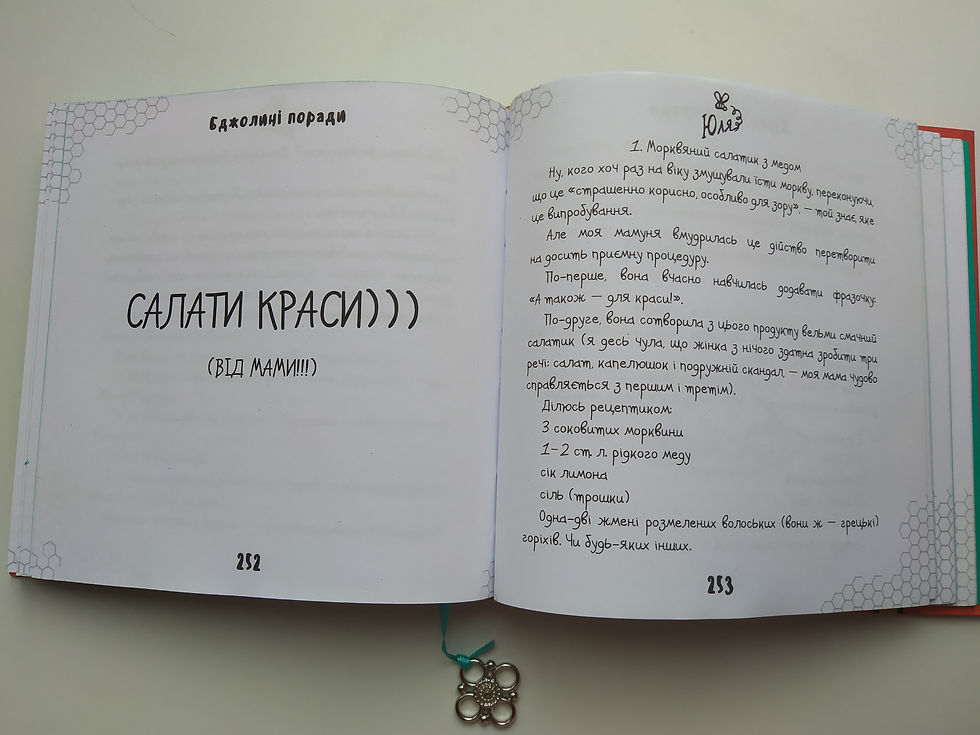 Бджолині поради
САЛАТИ КРАСИ)))
(ВІД МАМИ!!!)
252
Юля
1. Морквяний салатик з медом
Ну, кого хоч раз на віку змушували їсти моркву, переконуючи,
що це «страшенно корисно, особливо для зору», — той знає, яке
це випробування.
Але моя мамуня вмудрилась це дійство перетворити
на досить приємну процедуру.
По-перше, вона вчасно навчилась додавати фразочку:
«А також — для краси!».
По-друге, вона сотворила з цього продукту вельми смачний
салатик (я десь чула, що жінка з нічого здатна зробити три
речі: салат, капелюшок і подружній скандал, — моя мама чудово
справляється з першим і третім).
Ділюсь рецептиком:
3 соковитих морквини
1-2 ст. л. рідкого меду
сік лимона
сіль (трошки)
Одна-дві жмені розмелених волоських (вони ж — грецькі)
горіхів. Чи будь-яких інших.
253